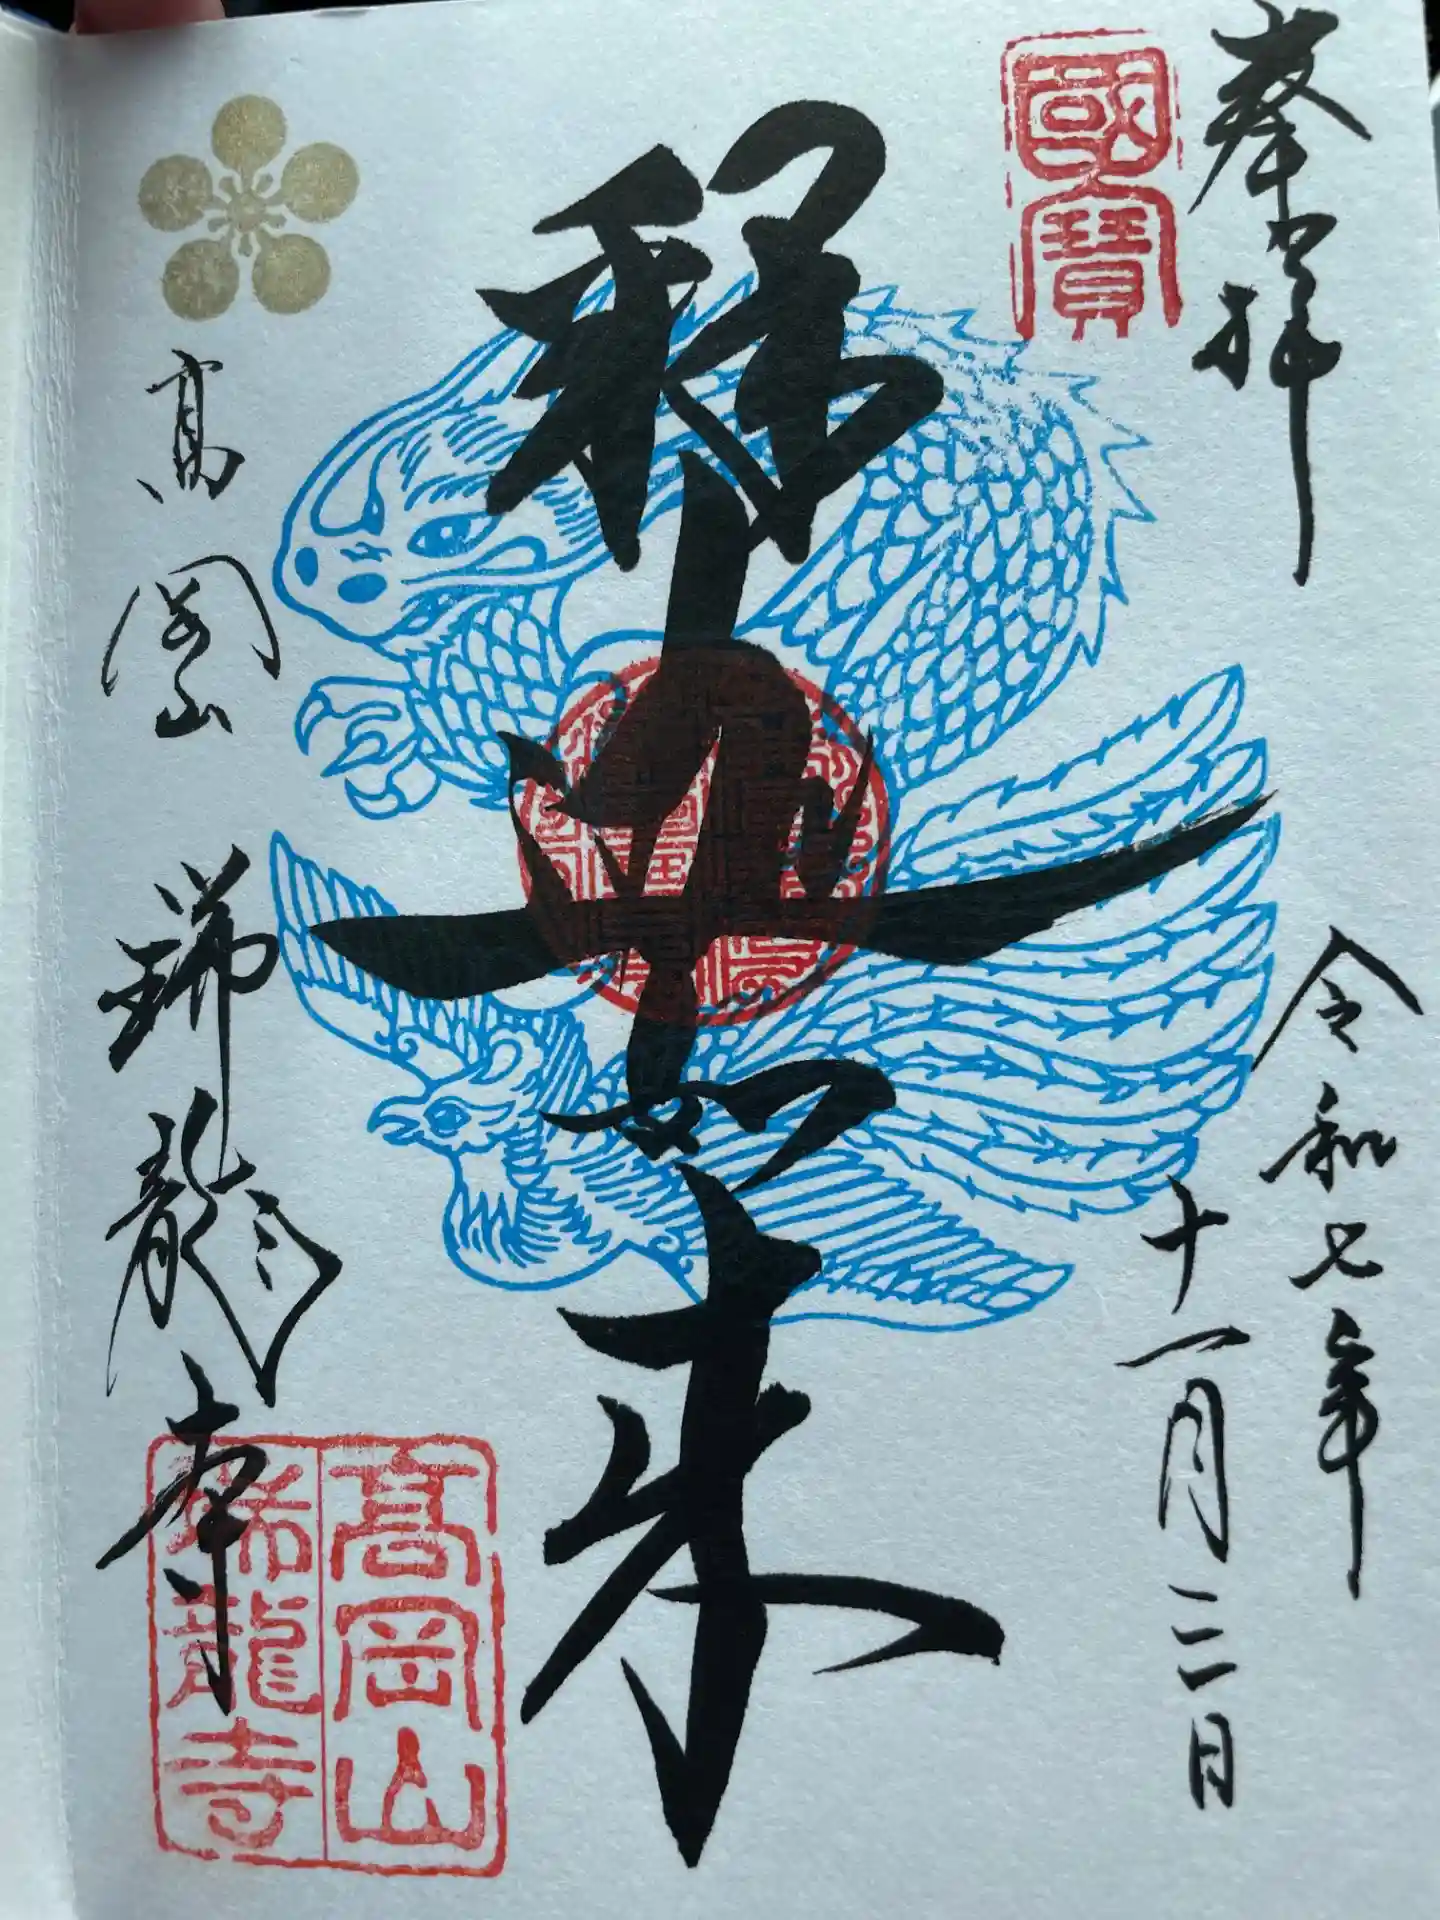 奉拝
國寳
令和七年
十一月二日
釋迦如来
高岡
瑞龍寺
高岡山
瑞龍寺